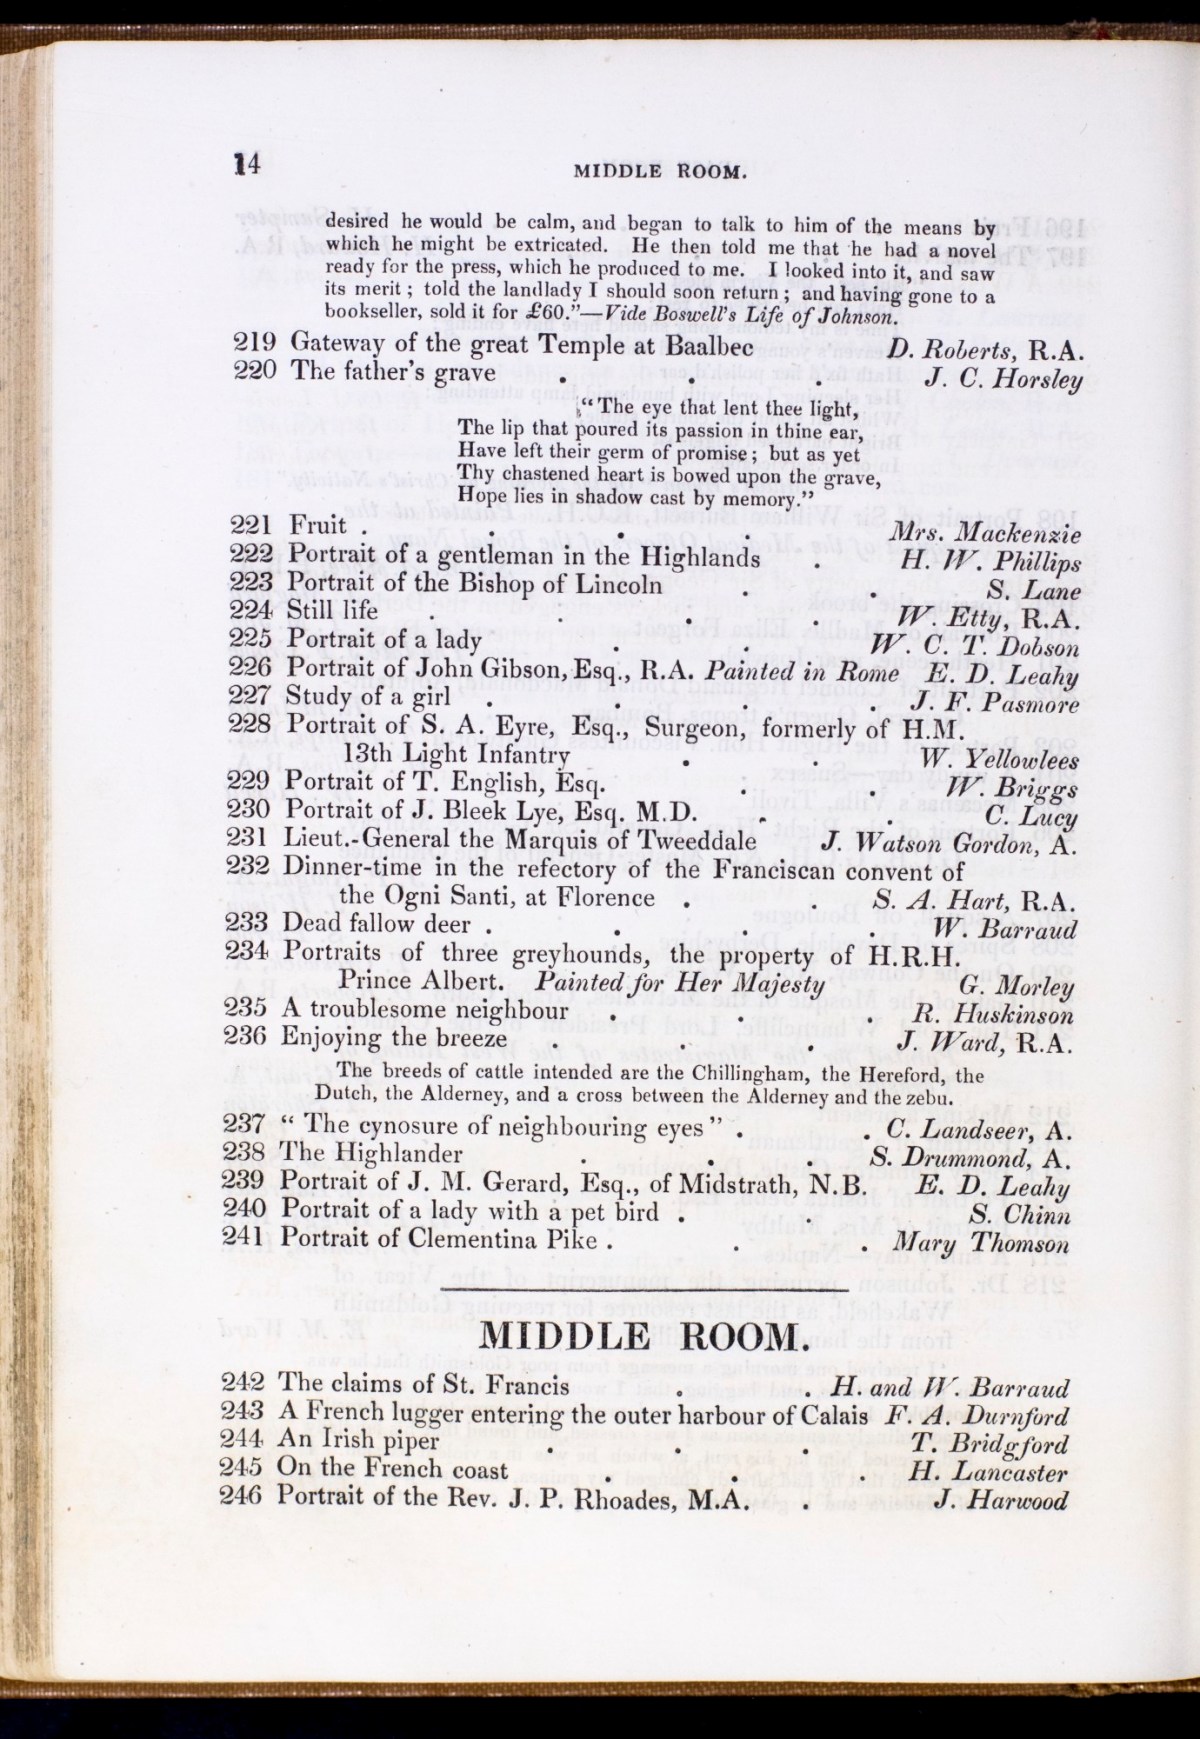 14 MIDDLE ROOM.
desired he would be calm, and began to talk to him of the means by
which he might be extricated. He then told me that he had a novel
ready for the press, which he produced to me. I looked into it, and saw
its merit; told the landlady I should soon return; and having gone to a
bookseller, sold it for £60."—Vide Boswell's Life of Johnson.
219 Gateway of the great Temple at Baalbec D. Roberts, R.A.
220 The father's grave . . . J. C. Horsley
"The eye that lent thee light,
The lip that poured its passion in thine ear,
Have left their germ of promise; but as yet
Thy chastened heart is bowed upon the grave,
Hope lies in shadow cast by memory."
221 Fruit . . . . Mrs. Mackenzie
222 Portrait of a gentleman in the Highlands . H. W. Phillips
223 Portrait of the Bishop of Lincoln . . S. Lane
224 Still life . . . . W. Etty, R.A.
225 Portrait of a lady . . . W. C. T. Dobson
226 Portrait of John Gibson, Esq., R.A. Painted in Rome E. D. Leahy
227 Study of a girl . . . . J. F. Pasmore
228 Portrait of S. A. Eyre, Esq., Surgeon, formerly of H.M.
13th Light Infantry . . W. Yellowlees
229 Portrait of T. English, Esq. . . W. Briggs
230 Portrait of J. Bleek Lye, Esq. M.D. . . C. Lucy
231 Lieut.-General the Marquis of Tweeddale J. Watson Gordon, A.
232 Dinner-time in the refectory of the Franciscan convent of
the Ogni Santi, at Florence . . S. A. Hart, R.A.
233 Dead fallow deer . . . . W. Barraud
234 Portraits of three greyhounds, the property of H.R.H.
Prince Albert. Painted for Her Majesty G. Morley
235 A troublesome neighbour . . . R. Huskinson
236 Enjoying the breeze . . . J. Ward, R.A.
The breeds of cattle intended are the Chillingham, the Hereford, the
Dutch, the Alderney, and a cross between the Alderney and the zebu.
237 "The cynosure of neighbouring eyes" . . C. Landseer, A.
238 The Highlander . . . S. Drummond, A.
239 Portrait of J. M. Gerard, Esq., of Midstrath, N.B. E. D. Leahy
240 Portrait of a lady with a pet bird . . S. Chinn
241 Portrait of Clementina Pike . . . Mary Thomson
MIDDLE ROOM.
242 The claims of St. Francis . . H. and W. Barraud
243 A French lugger entering the outer harbour of Calais F. A. Durnford
244 An Irish piper . . . T. Bridgford
245 On the French coast . . . H. Lancaster
246 Portrait of the Rev. J. P. Rhoades, M.A. . J. Harwood